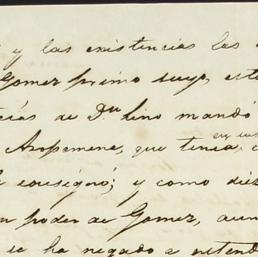 y las existencias las
Gomez primo suyo, esta
cías de D.n Lino mandó
Aropemena, que tenia en sus
consignó; y como dies
poder de Gomez, aun
se ha negado a estend